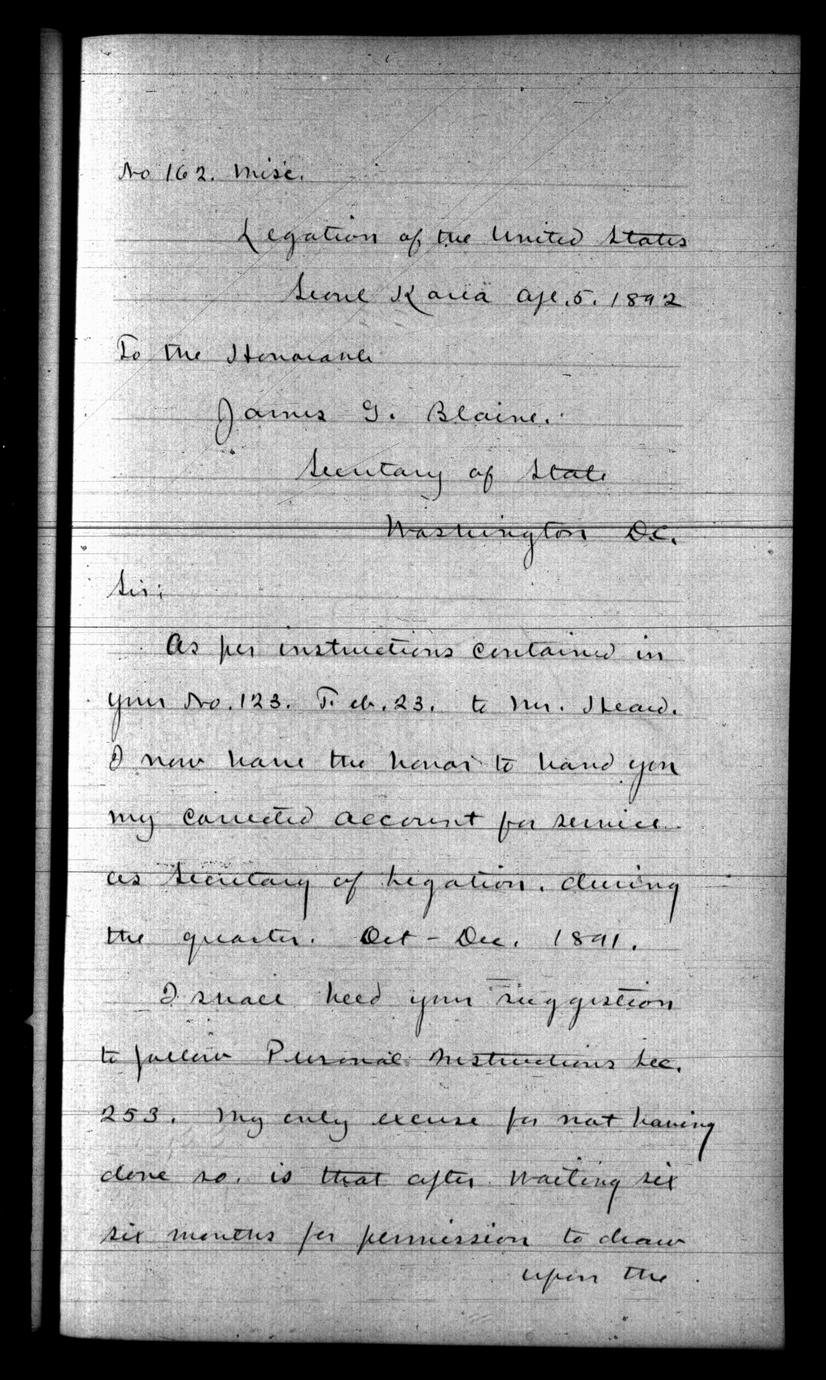 No 162. Misc.
Legation of the United States
Seoul Korea Apl. 5. 1892
To the Honorable
James G. Blaine.
Secretary of State
Washington D.C.
Sir:
As per instructions contained in
your No. 123. Feb. 23. to Mr. Heard.
I now have the honor to hand you
my corrected account for service
as Secretary of Legation. during
the quarter. Oct - Dec. 1891.
I shall heed your suggestion
to follow Personal Instructions Sec.
253. My only excuse for not having
done so. is that after waiting six
six months for permission to draw
upon the